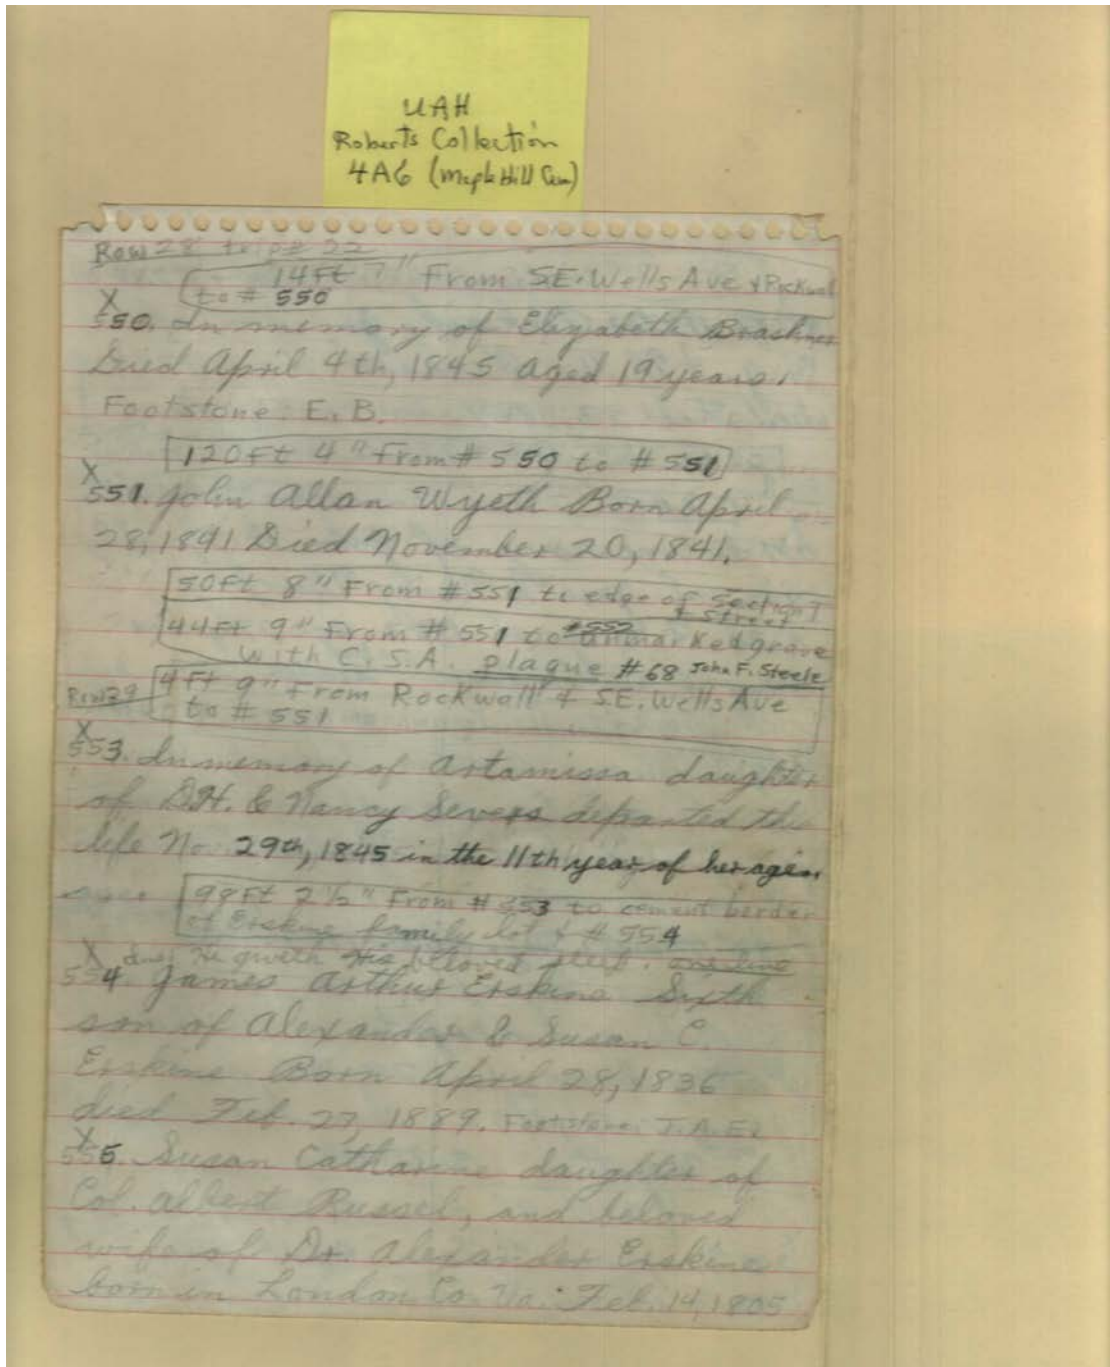 UAH
Roberts Collection
4A6 (Maple Hill Cem)
Row 28
14Ft 7" From S.E. Wells Ave & Rockwall
to # 550
X
550. In memory of Elizabeth Brashner
Died April 4th, 1845 aged 19 years.
Footstone: E. B.
120Ft 4" From # 550 to # 551
X
551. John Allan Wyeth Born April
28, 1841 Died November 20, 1841.
50Ft 8" From # 551 to edge of Section 7
& Street
44Ft 9" From # 551 to #552 unmarked grave
with C.S.A. plaque #68 John F. Steele
Row 29 4Ft 9" From Rockwall & S.E. Wells Ave
to # 551
X
553. In memory of Artamissa daughter
of D.H. & Nancy Severs departed this
life No 29th, 1845 in the 11th year of her age.
98Ft 2 1/2" From # 353 to cement border
of Erskine family lot & # 554
X He giveth His beloved sleep. one line
554. James Arthur Erskine Sixth
son of Alexander & Susan C.
Erskine Born April 28, 1836
died Feb. 27, 1889. Footstone: J.A.E.
X
556. Susan Catharine daughter of
Col. Albert Russel, and beloved
wife of Dr. Alexander Erskine
born in London Co. Va. Feb. 14, 1805